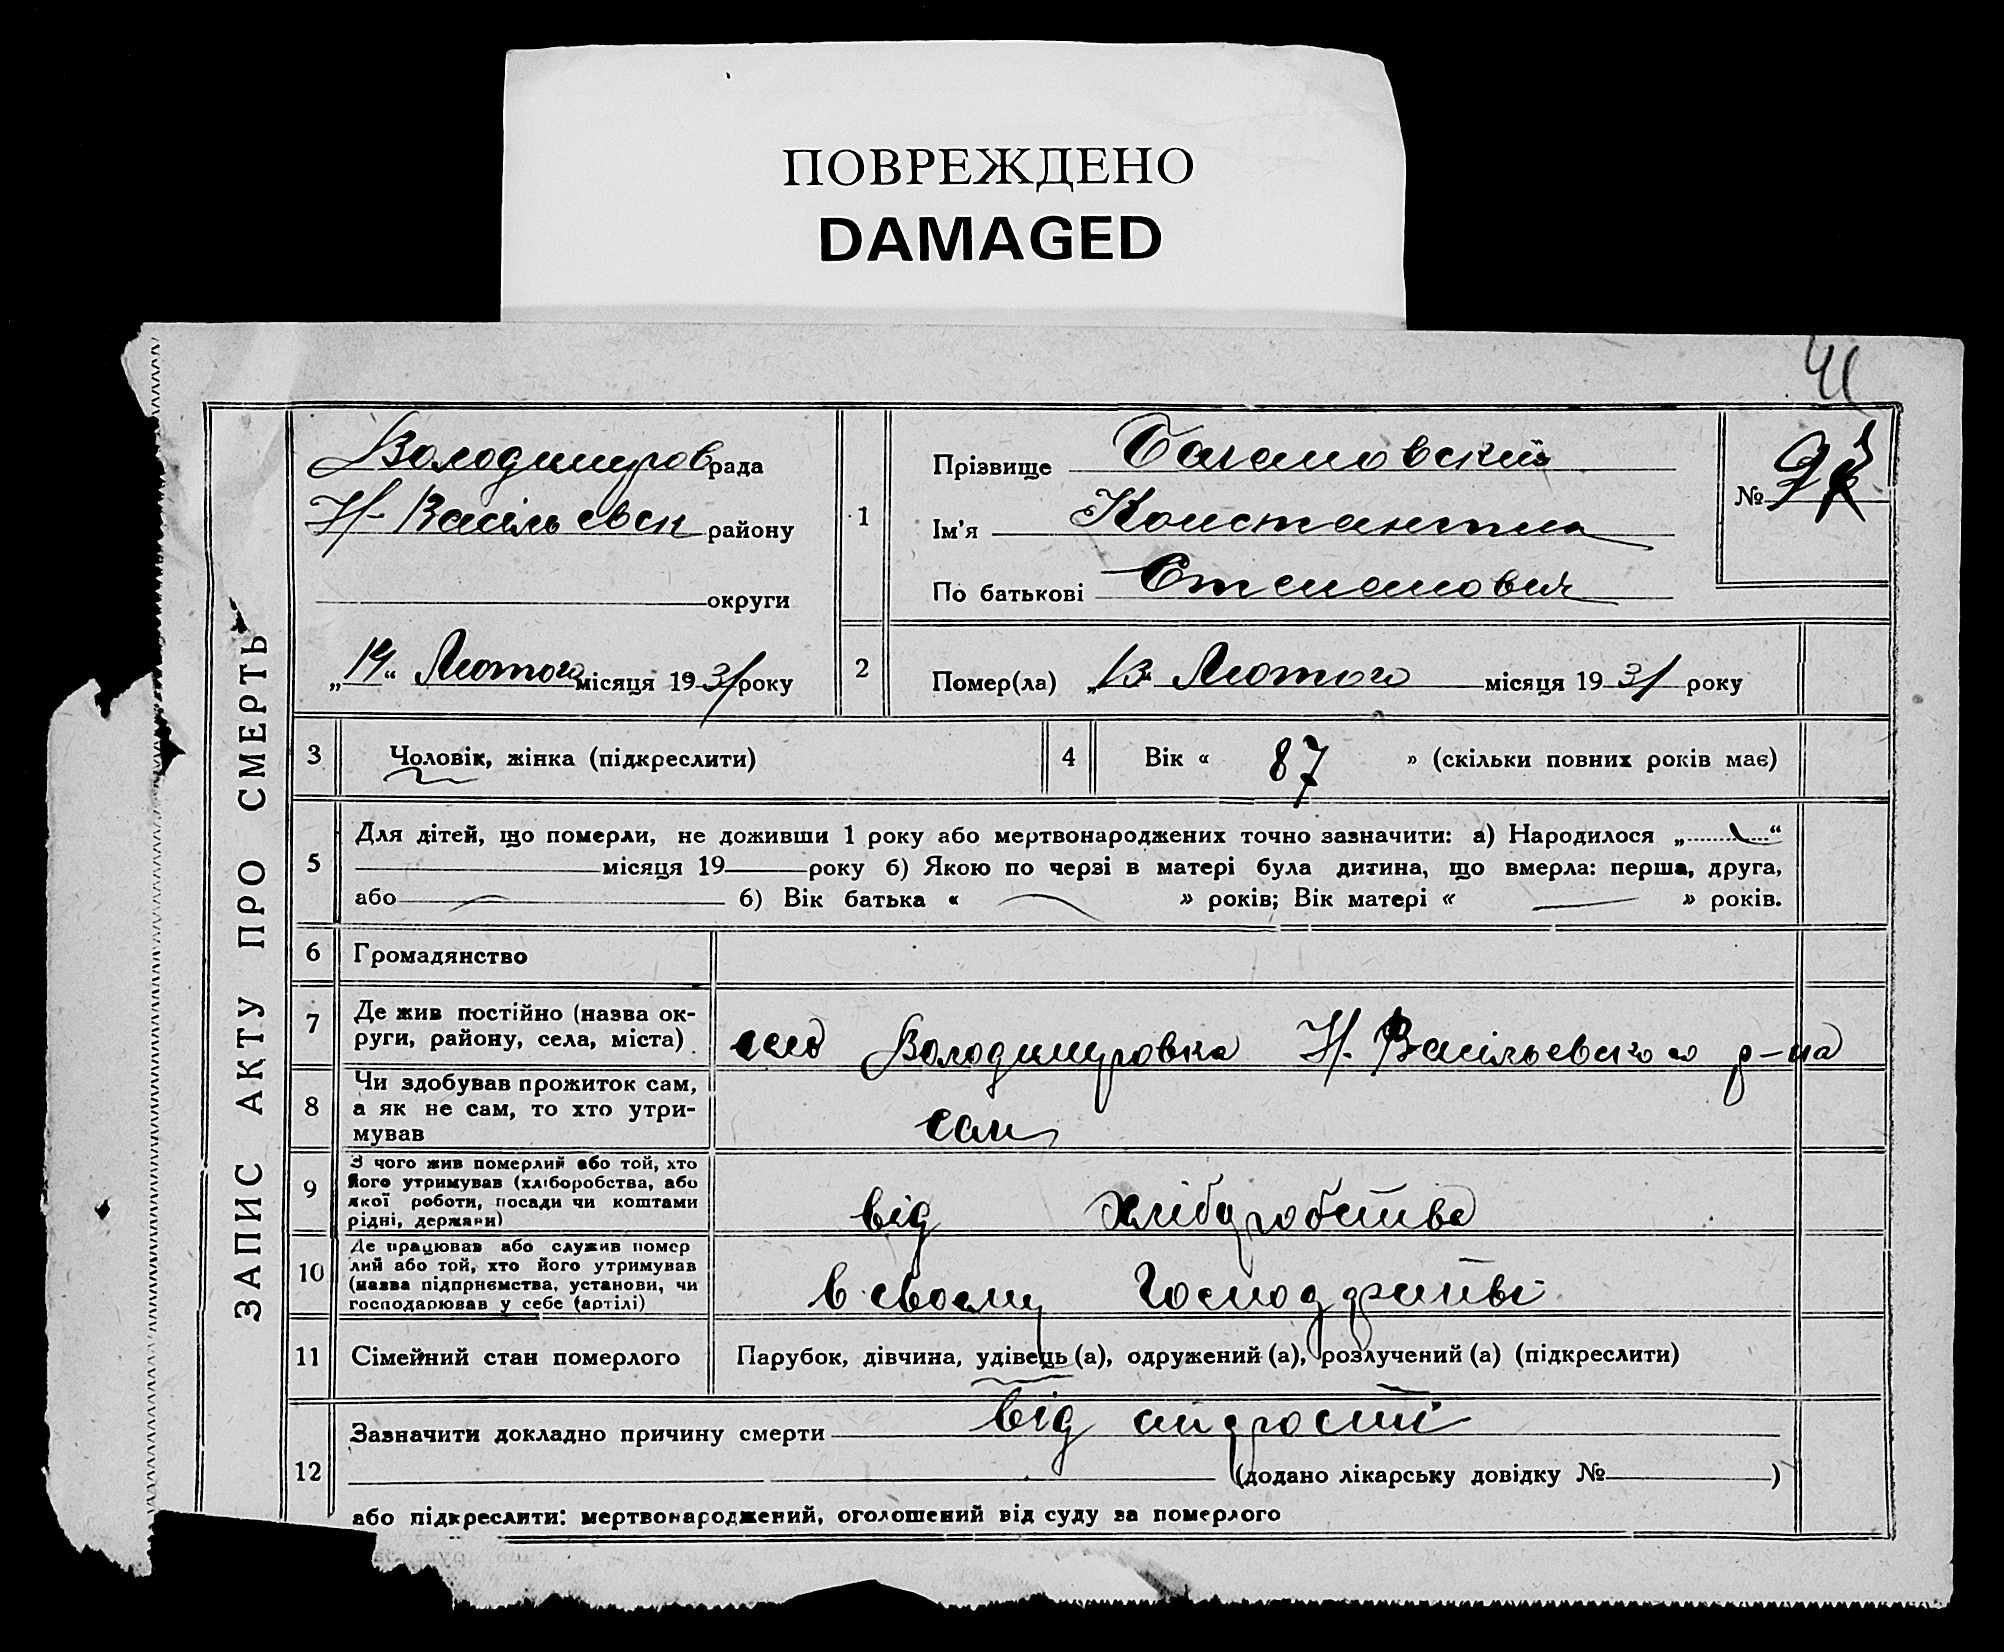 ПОВРЕЖДЕНО
DAMAGED
41
ЗАПИС АКТУ ПРО СМЕРТЬ
Володимиров рада
Н-Васільевск району
округи
„14“ Лютого місяця 1931 року
1
Прізвище
Ім'я Константин
По батькові Степанович
№
2
Помер(ла) „13“ Лютого місяця 1931 року
3 Чоловік, жінка (підкреслити)
4 Вік « 87 » (скільки повних років має)
5 Для дітей, що померли, не доживши 1 року або мертвонароджених точно зазначити: а) Народилося „ “
місяця 19 року б) Якою по черзі в матері була дитина, що вмерла: перша, друга,
або б) Вік батька « » років; Вік матері « » років.
6 Громадянство
7 Де жив постійно (назва ок-
руги, району, села, міста) село Володимировка Н. Васільевского р-на
8 Чи здобував прожиток сам,
а як не сам, то хто утри-
мував
сам
9 З чого жив померлий або той, хто
його утримував (хліборобства, або
якої роботи, посади чи коштами
рідні, держави)
від хліборобства
10 Де працював або служив помер
лий або той, хто його утримував
(назва підприємства, установи, чи
господарював у себе (артілі)
в своему
11 Сімейний стан померлого Парубок, дівчина, удівець (а), одружений (а), розлучений (а) (підкреслити)
12 Зазначити докладно причину смерти від
(додано лікарську довідку № )
або підкреслити: мертвонароджений, оголошений від суду за померлого